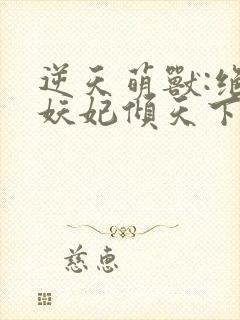 逆天萌獸:絕
妖妃傾天下
慈惠